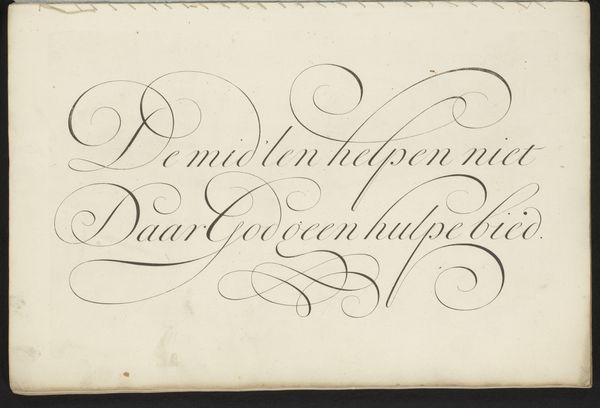 De mid'len helpen niet
Daar God geen hulpe biéd.